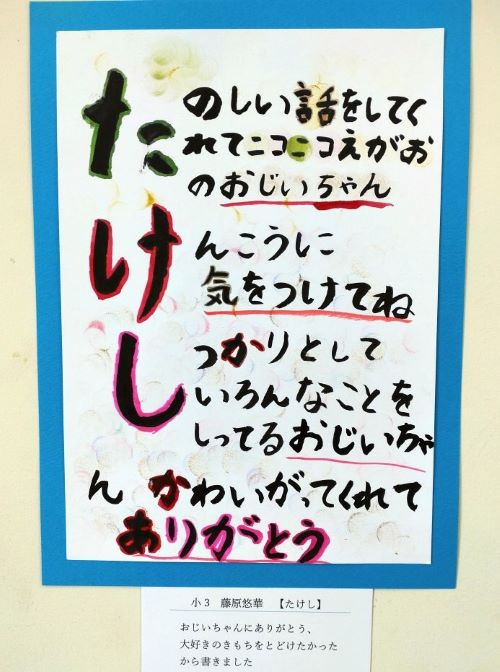 たのしい話をしてく
れてニコニコえがお
のおじいちゃん
けんこうに
気をつけてね
しっかりとして
いろんなことを
しってるおじいちゃ
んかわいがってくれて
ありがとう
小3 藤原悠華 【たけし】
おじいちゃんにありがとう、
大好きのきもちをとどけたかった
から書きました